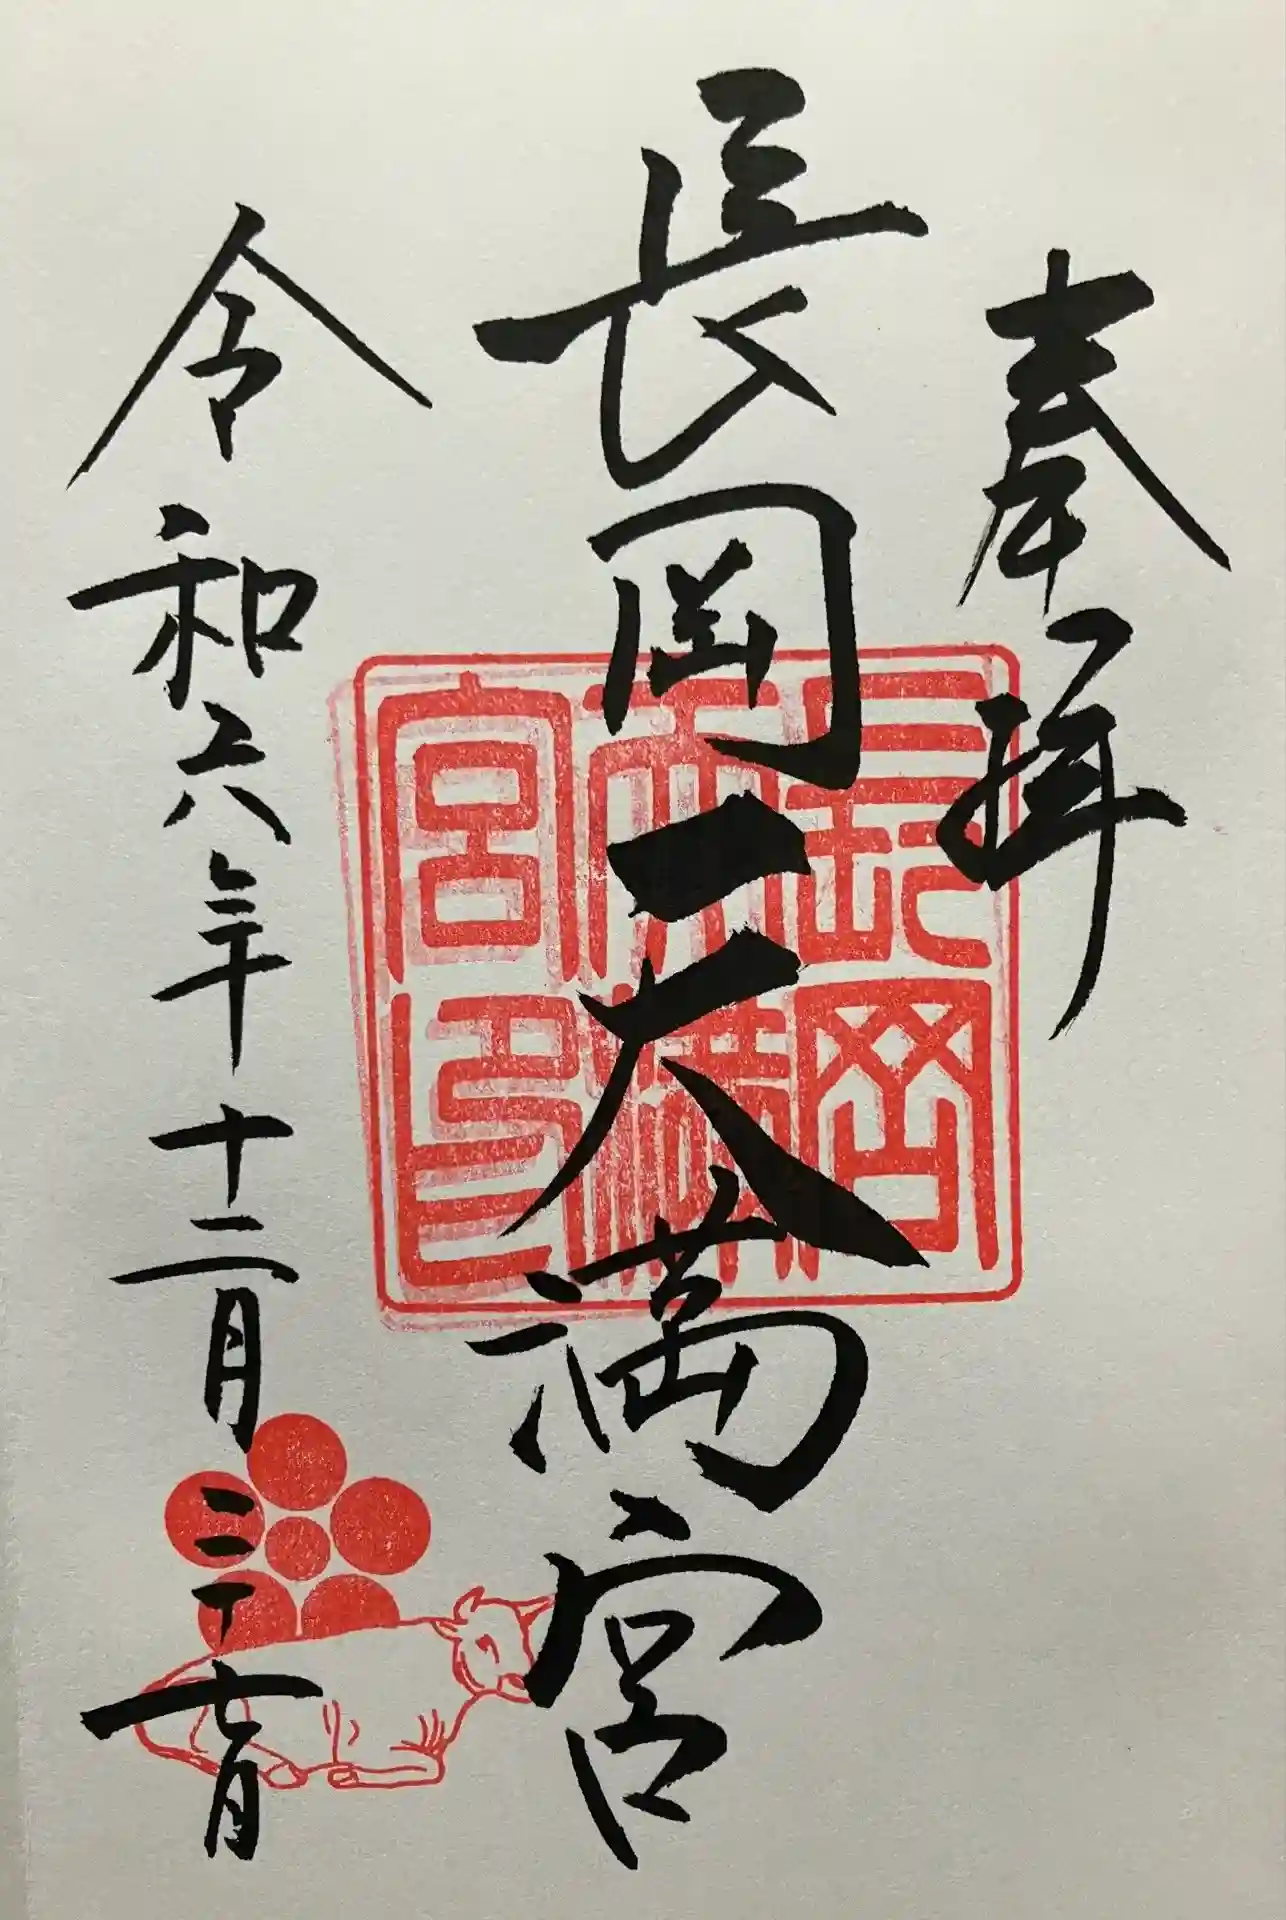 奉拝
長岡天満宮
令和六年十二月二十七日
長岡
天満
宮印